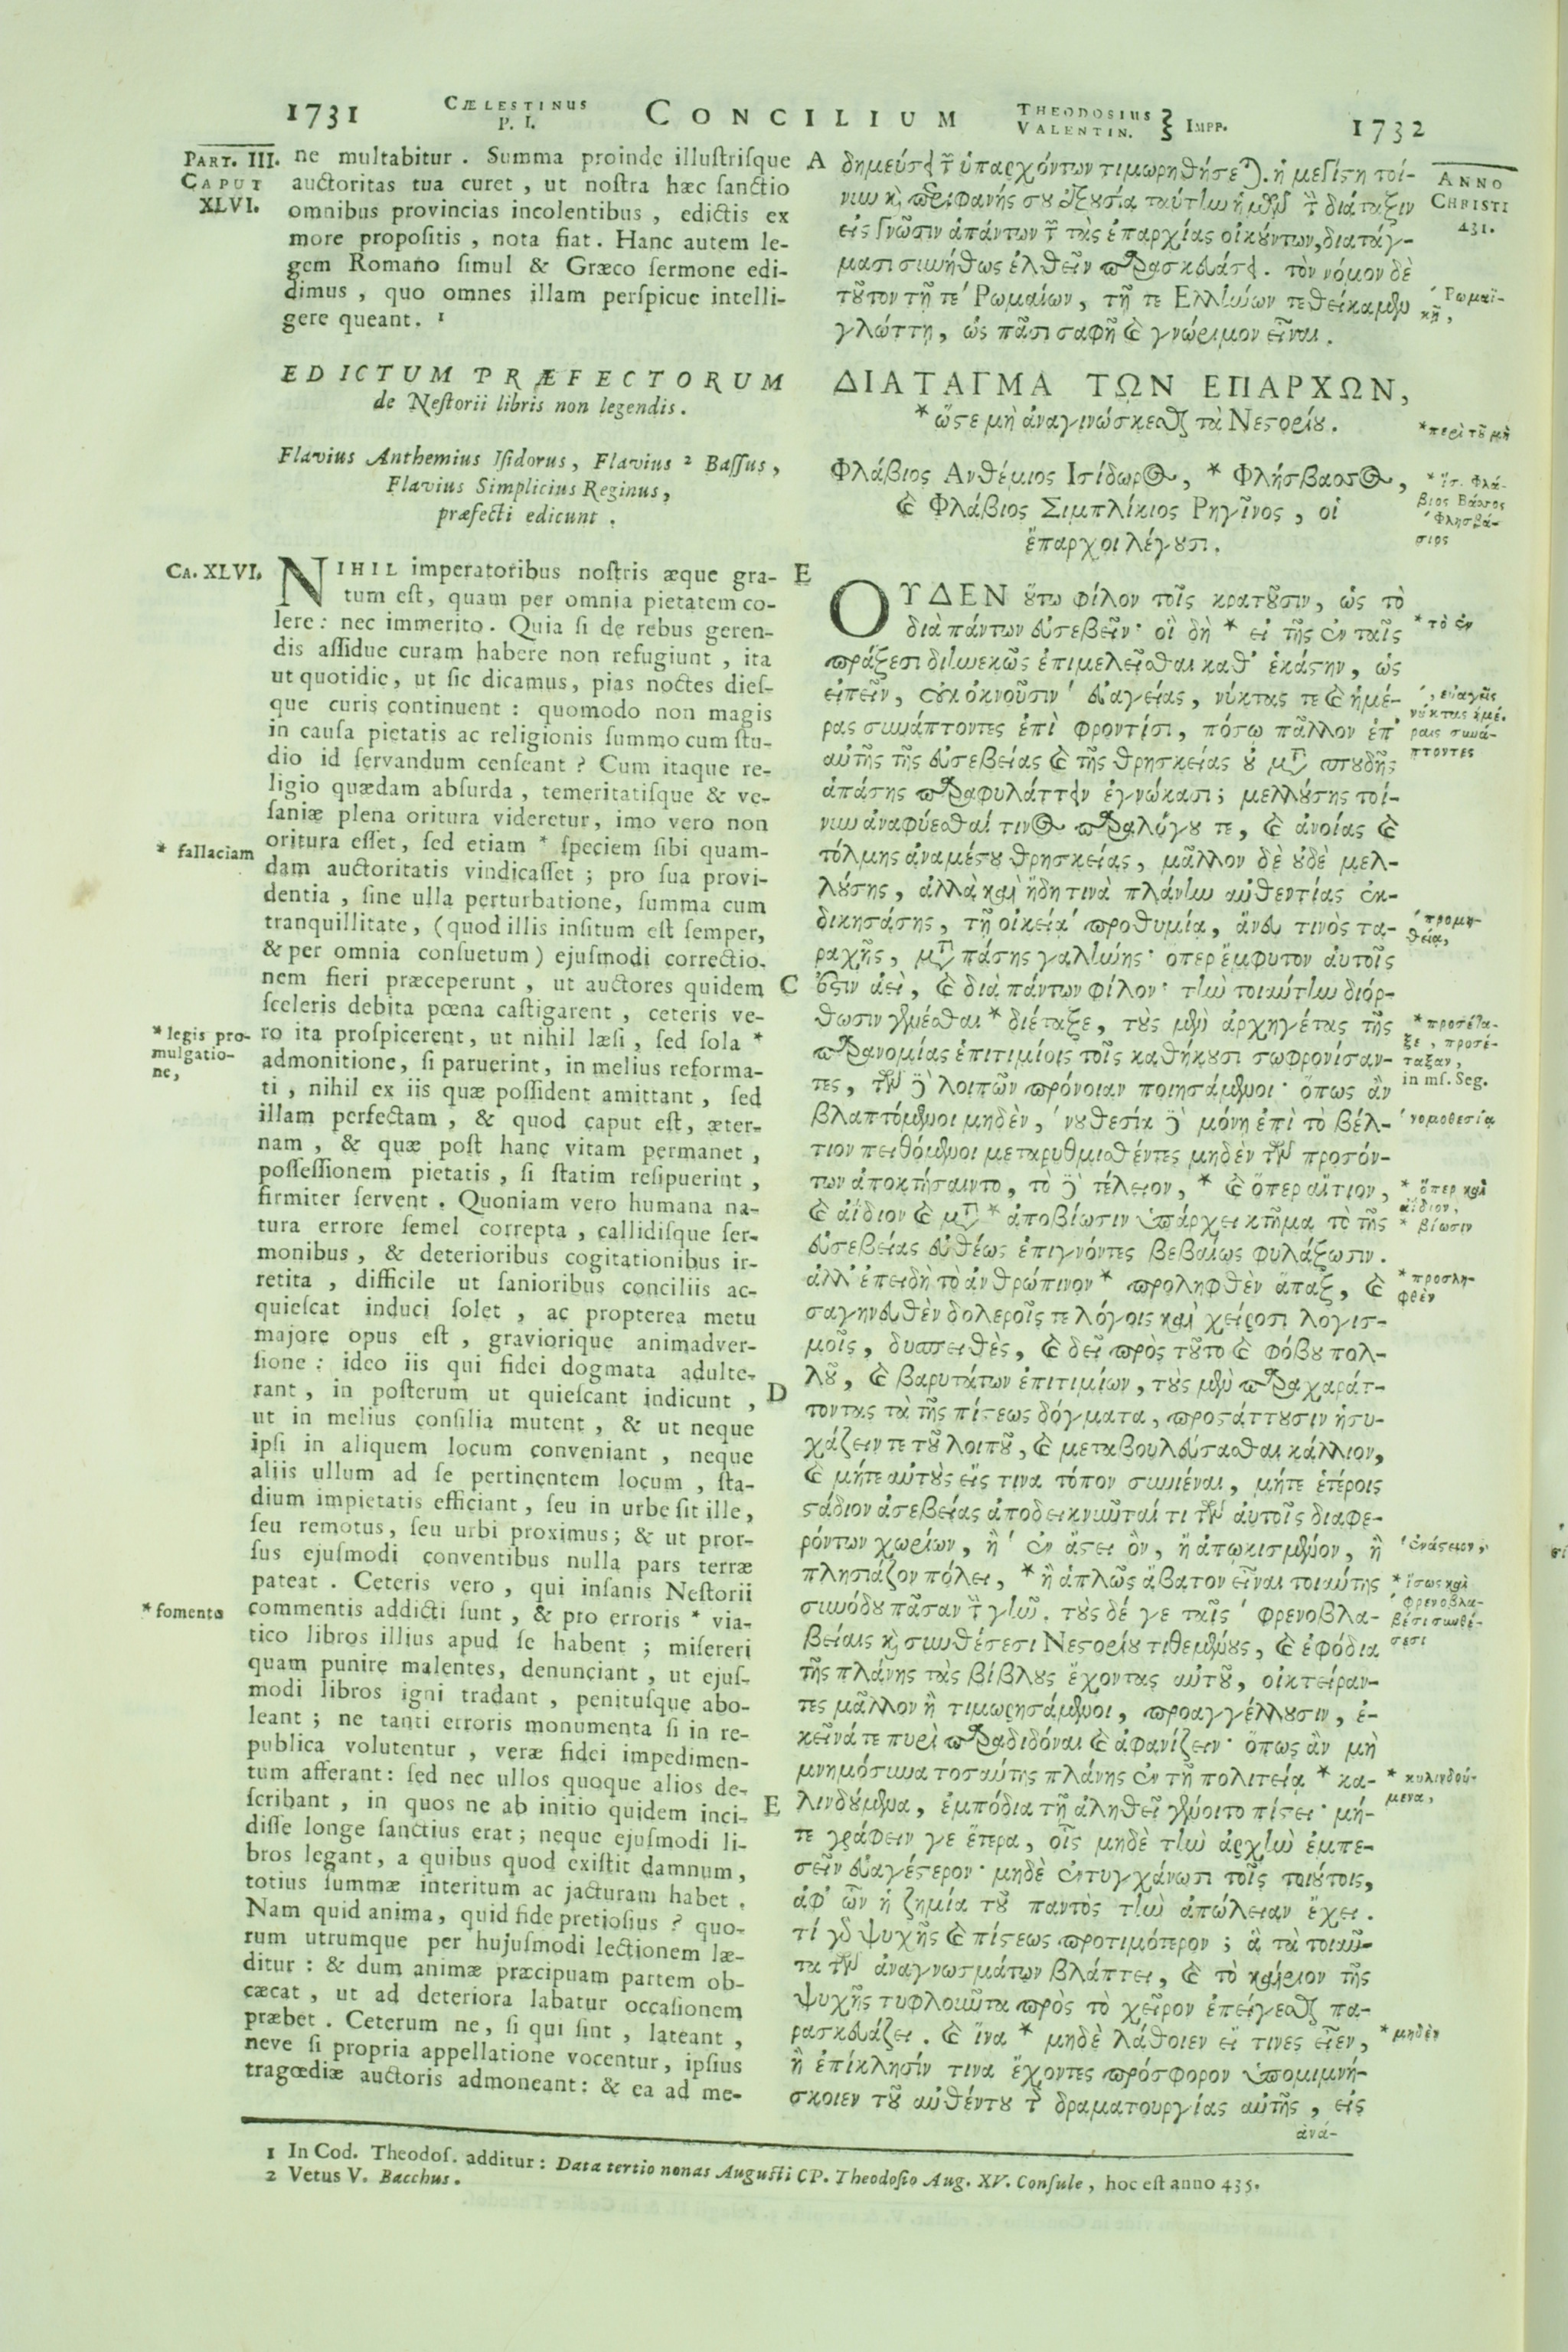 1731
CÆLESTINUS
P. I.
CONCILIUM
THEODOSIUS
VALENTIN.
IMPP.
1732
PART. III.
CAPUT
XLVI.
ne multabitur. Summa proinde illuſtriſque
auctoritas tua curet, ut noſtra hæc ſanctio
omnibus provincias incolentibus, edictis ex
more propoſitis, nota fiat. Hanc autem le-
gem Romano ſimul & Græco ſermone edi-
dimus, quo omnes illam perſpicue intelli-
gere queant. 1
EDICTUM PRÆFECTORUM
de Neſtorii libris non legendis.
Flavius Anthemius Iſidorus, Flavius 2 Baſſus,
Flavius Simplicius Reginus,
præfecti edicunt.
CA. XLVI.
NIHIL imperatoribus noſtris æque gra-
tum eſt, quam per omnia pietatem co-
lere: nec immerito. Quia ſi de rebus geren-
dis aſſidue curam habere non refugiunt, ita
ut quotidie, ut ſic dicamus, pias noctes dieſ-
que curis continuent: quomodo non magis
in cauſa pietatis ac religionis ſummo cum ſtu-
dio id ſervandum cenſeant? Cum itaque re-
ligio quædam abſurda, temeritatiſque & ve-
ſaniæ plena oritura videretur, imo vero non
oritura eſſet, ſed etiam * ſpeciem ſibi quam-
* fallaciam
dam auctoritatis vindicaſſet; pro ſua provi-
dentia, ſine ulla perturbatione, ſumma cum
tranquillitate, (quod illis inſitum eſt ſemper,
& per omnia conſuetum) ejuſmodi correctio-
nem fieri præceperunt, ut auctores quidem
ſceleris debita pœna caſtigarent, ceteris ve-
ro ita proſpicerent, ut nihil læſi, ſed ſola *
* legis pro-
mulgatio-
ne,
admonitione, ſi paruerint, in melius reforma-
ti, nihil ex iis quæ poſſident amittant, ſed
illam perfectam, & quod caput eſt, æter-
nam, & quæ poſt hanc vitam permanet,
poſſeſſionem pietatis, ſi ſtatim reſipuerint,
firmiter ſervent. Quoniam vero humana na-
tura errore ſemel correpta, callidiſque ſer-
monibus, & deterioribus cogitationibus ir-
retita, difficile ut ſanioribus conciliis ac-
quieſcat induci ſolet, ac propterea metu
majore opus eſt, graviorique animadver-
ſione: ideo iis qui fidei dogmata adulte-
rant, in poſterum ut quieſcant indicunt,
ut in melius conſilia mutent, & ut neque
ipſi in aliquem locum conveniant, neque
aliis ullum ad ſe pertinentem locum, ſta-
dium impietatis efficiant, ſeu in urbe ſit ille,
ſeu remotus, ſeu urbi proximus; & ut pror-
ſus ejuſmodi conventibus nulla pars terræ
pateat. Ceteris vero, qui inſanis Neſtorii
commentis addicti ſunt, & pro erroris * via-
* fomento
tico libros illius apud ſe habent; miſereri
quam punire malentes, denunciant, ut ejuſ-
modi libros igni tradant, penituſque abo-
leant; ne tanti erroris monumenta ſi in re-
publica volutentur, veræ fidei impedimen-
tum afferant: ſed nec ullos quoque alios de-
ſcribant, in quos ne ab initio quidem inci-
diſſe longe ſanctius erat; neque ejuſmodi li-
bros legant, a quibus quod exiſtit damnum,
totius ſummæ interitum ac jacturam habet.
Nam quid anima, quid fide pretioſius? quo-
rum utrumque per hujuſmodi lectionem læ-
ditur: & dum animæ præcipuam partem ob-
cæcat, ut ad deteriora labatur occaſionem
præbet. Ceterum ne, ſi qui ſint, lateant,
neve ſi propria appellatione vocentur, ipſius
tragœdiæ auctoris admoneant: & ea ad me-
A
E
C
D
E
ANNO
CHRISTI
431.
δημεύσει τῶν ὑπαρχόντων τιμωρηθήσεται. ἡ μεγίστη τοί-
νυν καὶ περιφανής σου ἐξουσία ταύτην ἡμῶν τὴν διάταξιν
εἰς γνῶσιν ἁπάντων τῶν τὰς ἐπαρχίας οἰκούντων, διατάγ-
μασι συνήθως ἐλθεῖν παρασκευάσει. τὸν νόμον δὲ
τοῦτον τῇ τε ʹ Ρωμαίων, τῇ τε Ελλήνων τεθείκαμεν
ʹ Ρωμαϊ-
κῇ,
γλώττῃ, ὡς πᾶσι σαφῆ καὶ γνώριμον εἶναι.
ΔΙΑΤΑΓΜΑ ΤΩΝ ΕΠΑΡΧΩΝ,
* ὥστε μὴ ἀναγινώσκεσθαι τὰ Νεστορίου.
* περὶ τοῦ μὴ
Φλάβιος Ανθέμιος Ισίδωρος, * Φλήσβασσος,
* ἴσ. Φλά-
βιος Βάσσος
ʹ Φλησβά-
σιος
καὶ Φλάβιος Σιμπλίκιος Ρηγῖνος, οἱ
ἔπαρχοι λέγουσι.
ΟΥΔΕΝ οὕτω φίλον τοῖς κρατοῦσιν, ὡς τὸ
διὰ πάντων εὐσεβεῖν· οἳ δὴ * εἰ τῆς ἐν ταῖς
* τὸ ἐν
πράξεσι διηνεκῶς ἐπιμελεῖσθαι καθ᾽ ἑκάστην, ὡς
εἰπεῖν, οὐκ ὀκνοῦσιν ʹ εὐαγείας, νύκτας τε καὶ ἡμέ-
ʹ, εὐαγεῖς
νύκτας ἡμέ-
ραις συνά-
πτοντες
ρας συνάπτοντες ἐπὶ φροντίσι, πόσῳ μᾶλλον ἐπ᾽
αὐτῆς τῆς εὐσεβείας καὶ τῆς θρησκείας οὐ μετὰ σπουδῆς
ἁπάσης παραφυλάττειν ἐγνώκασι; μελλούσης τοί-
νυν ἀναφύεσθαί τινος παραλόγου τε, καὶ ἀνοίας καὶ
τόλμης ἀναμέστου θρησκείας, μᾶλλον δὲ οὐδὲ μελ-
λούσης, ἀλλὰ καὶ ἤδη τινὰ πλάνην αὐθεντίας ἐκ-
δικησάσης, τῇ οἰκείᾳ ʹ προθυμίᾳ, ἄνευ τινὸς τα-
ʹ προμη-
θείᾳ,
ραχῆς, μετὰ πάσης γαλήνης· ὅπερ ἔμφυτον αὐτοῖς
ἐστιν ἀεὶ, καὶ διὰ πάντων φίλον· τὴν τοιαύτην διόρ-
θωσιν γενέσθαι * διέταξε, τοὺς μὲν ἀρχηγέτας τῆς
* προσέτα-
ξε, προσέ-
ταξαν,
in mſ. Seg.
παρανομίας ἐπιτιμίοις τοῖς καθήκουσι σωφρονίσαν-
τες, τῶν δὲ λοιπῶν πρόνοιαν ποιησάμενοι· ὅπως ἂν
βλαπτόμενοι μηδὲν, ʹ νουθεσίᾳ δὲ μόνῃ ἐπὶ τὸ βέλ-
ʹ νομοθεσίᾳ
τιον πειθόμενοι μεταρυθμισθέντες μηδὲν τῶν προσόν-
των ἀποκτήσαιντο, τὸ δὲ τέλειον, * καὶ ὅπερ αἴτιον,
* ὅπερ καὶ
ἀΐδιον,
καὶ ἀίδιον καὶ μετὰ * ἀποβίωσιν ὑπάρχει κτῆμα τὸ τῆς
* βίωσιν
εὐσεβείας εὐθέως ἐπιγνόντες βεβαίως φυλάξωσιν.
ἀλλ᾽ ἐπειδὴ τὸ ἀνθρώπινον * προληφθὲν ἅπαξ, καὶ
* προσλη-
φθὲν
σαγηνευθὲν δολεροῖς τε λόγοις καὶ χείροσι λογισ-
μοῖς, δυσπειθὲς, καὶ δεῖ πρὸς τοῦτο καὶ φόβου πολ-
λοῦ, καὶ βαρυτάτων ἐπιτιμίων, τοὺς μὲν παραχαράτ-
τοντας τὰ τῆς πίστεως δόγματα, προστάττουσιν ἡσυ-
χάζειν τε τοῦ λοιποῦ, καὶ μεταβουλεύσασθαι κάλλιον,
καὶ μήτε αὐτοὺς εἴς τινα τόπον συνιέναι, μήτε ἑτέροις
στάδιον ἀσεβείας ἀποδεικνῦνταί τι τῶν αὐτοῖς διαφε-
ρόντων χωρίων, ἢ ʹ ἐν ἄστει ὂν, ἢ ἀπωκισμένον, ἢ
ʹ ἐνάστειον,
πλησιάζον πόλει, * ἢ ἁπλῶς ἄβατον εἶναι τοιαύτης
* ἴσως καὶ
συνόδου πᾶσαν τὴν γῆν. τοὺς δέ γε ταῖς ʹ φρενοβλα-
ʹ φρενοβλα-
βέσι συνθέ-
σεσι
βείαις καὶ συνθέσεσι Νεστορίου τιθεμένους, καὶ ἐφόδια
τῆς πλάνης τὰς βίβλους ἔχοντας αὐτοῦ, οἰκτείραν-
τες μᾶλλον ἢ τιμωρησάμενοι, προαγγέλλουσιν, ἐ-
κεῖνά τε πυρὶ παραδιδόναι καὶ ἀφανίζειν· ὅπως ἂν μὴ
μνημόσυνα τοσαύτης πλάνης ἐν τῇ πολιτείᾳ * κα-
* κυλινδού-
μενα,
λινδούμενα, ἐμπόδια τῇ ἀληθεῖ γένοιτο πίστει· μή-
τε γράφειν γε ἕτερα, οἷς μηδὲ τὴν ἀρχὴν ἐμπε-
σεῖν εὐαγέστερον· μηδὲ ἐντυγχάνωσι τοῖς τοιούτοις,
ἀφ᾽ ὧν ἡ ζημία τοῦ παντὸς τὴν ἀπώλειαν ἔχει.
τί γὰρ ψυχῆς καὶ πίστεως προτιμότερον; ἃ τὰ τοιαῦ-
τα τῶν ἀναγνωσμάτων βλάπτει, καὶ τὸ καίριον τῆς
ψυχῆς τυφλοῦντα πρὸς τὸ χεῖρον ἐπείγεσθαι πα-
ρασκευάζει. καὶ ἵνα * μηδὲ λάθοιεν εἴ τινες εἶεν,
* μηδὲν
ἢ ἐπίκλησίν τινα ἔχοντες πρόσφορον ὑπομιμνή-
σκοιεν τοῦ αὐθέντου τῆς δραματουργίας αὐτῆς, εἰς
ἀνά-
1 In Cod. Theodoſ. additur: Data tertio nonas Auguſti CP. Theodoſio Aug. XV. Conſule, hoc eſt anno 435.
2 Vetus V. Bacchus.